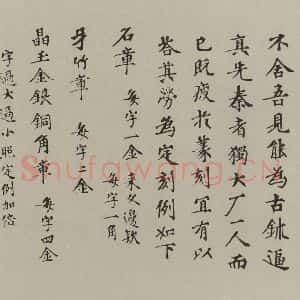 不舍吾見能為古鉥逼
真先秦者獨大厂一人而
已既疲於篆刻宜有以
答其勞為定刻例如下
石章 每字一金 朱文邊款
每字一角
牙竹章 每字二金
晶玉金銀銅角章 每字四金
字過大過小照定例加倍
Shufawang.CN